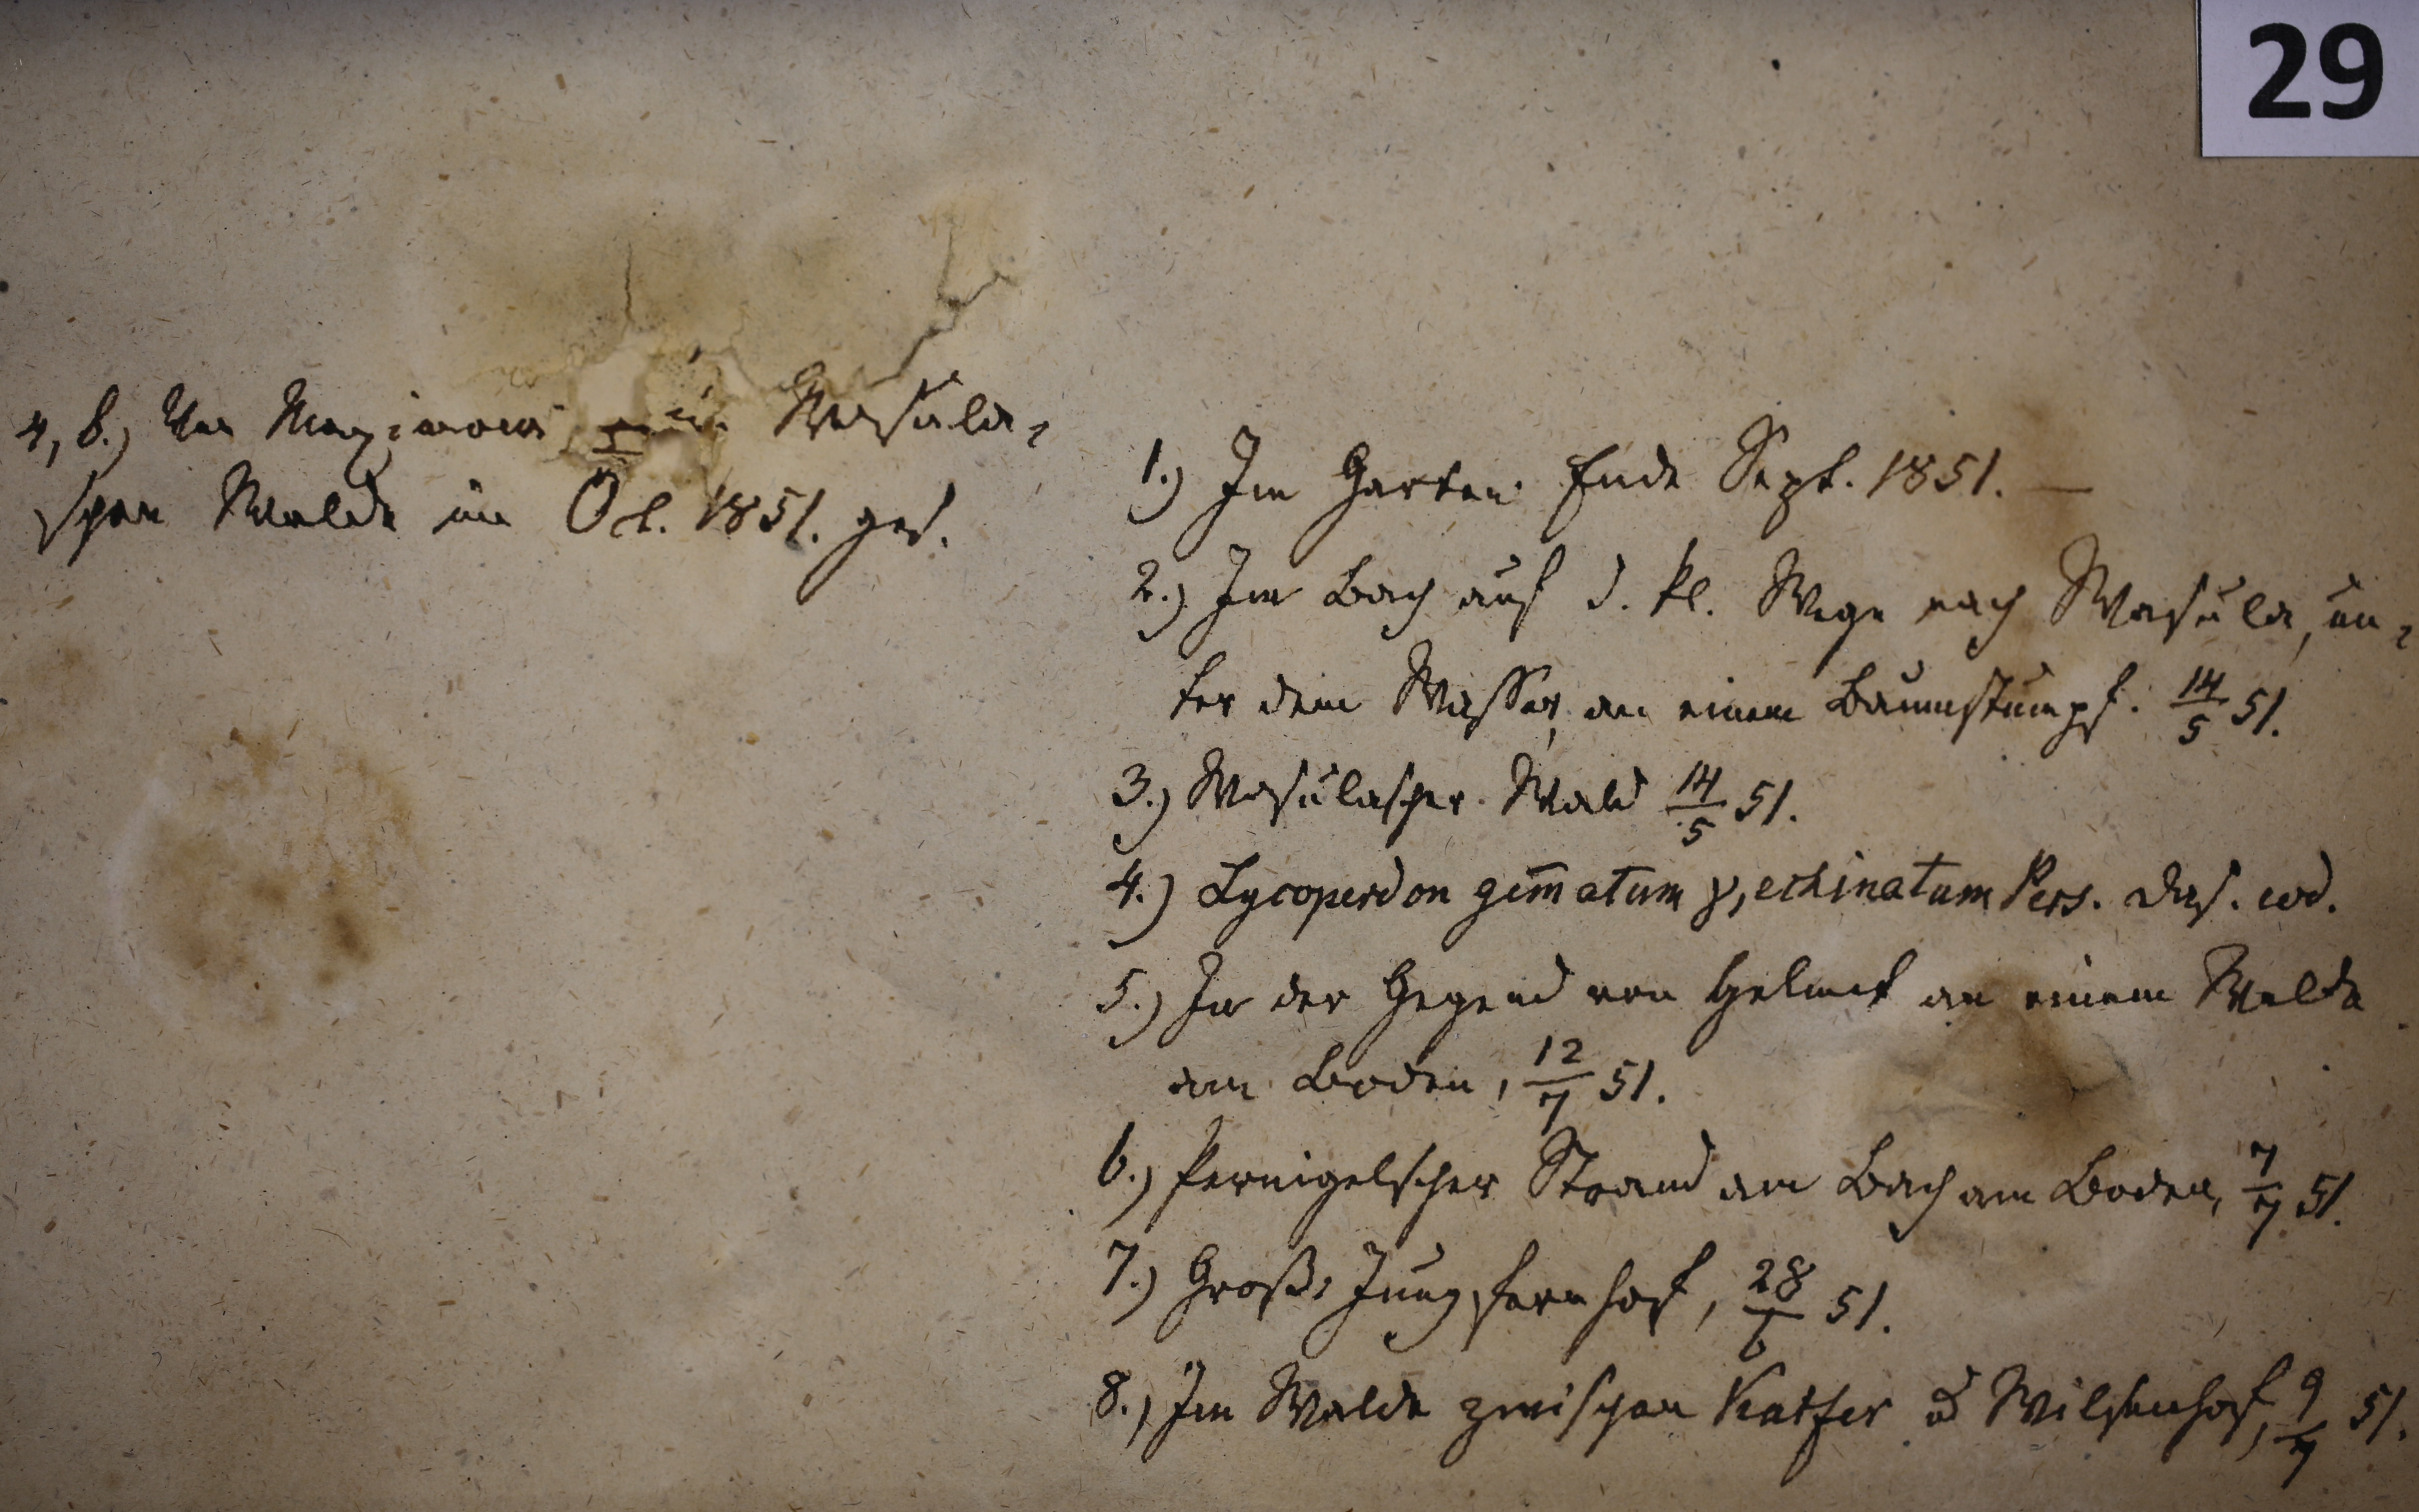 29
4, b.) Von Maximowi im Wasula-
schen Walde im Oct. 1851. ges.
1.) Im Garten Ende Sept. 1851. —
2.) Im Bach auf d. kl. Wege nach Wasula, un-
ter dem Wasser, an einem Baumstumpf. 14/5 51.
3.) Wasulascher Wald 14/5 51.
4.) Lycoperdon gem̄atum γ, echinatum Pers. eod.
5.) In der Gegend von Helmet an einem Walde
am Boden, 12/7 51.
6.) Pernigelscher Strand am Bach am Boden, 7/7 51.
7.) Groß-Jungfernhof, 28/6 51.
8.) Im Walde zwischen Katfer u Wilsenhof, 9/7 51.